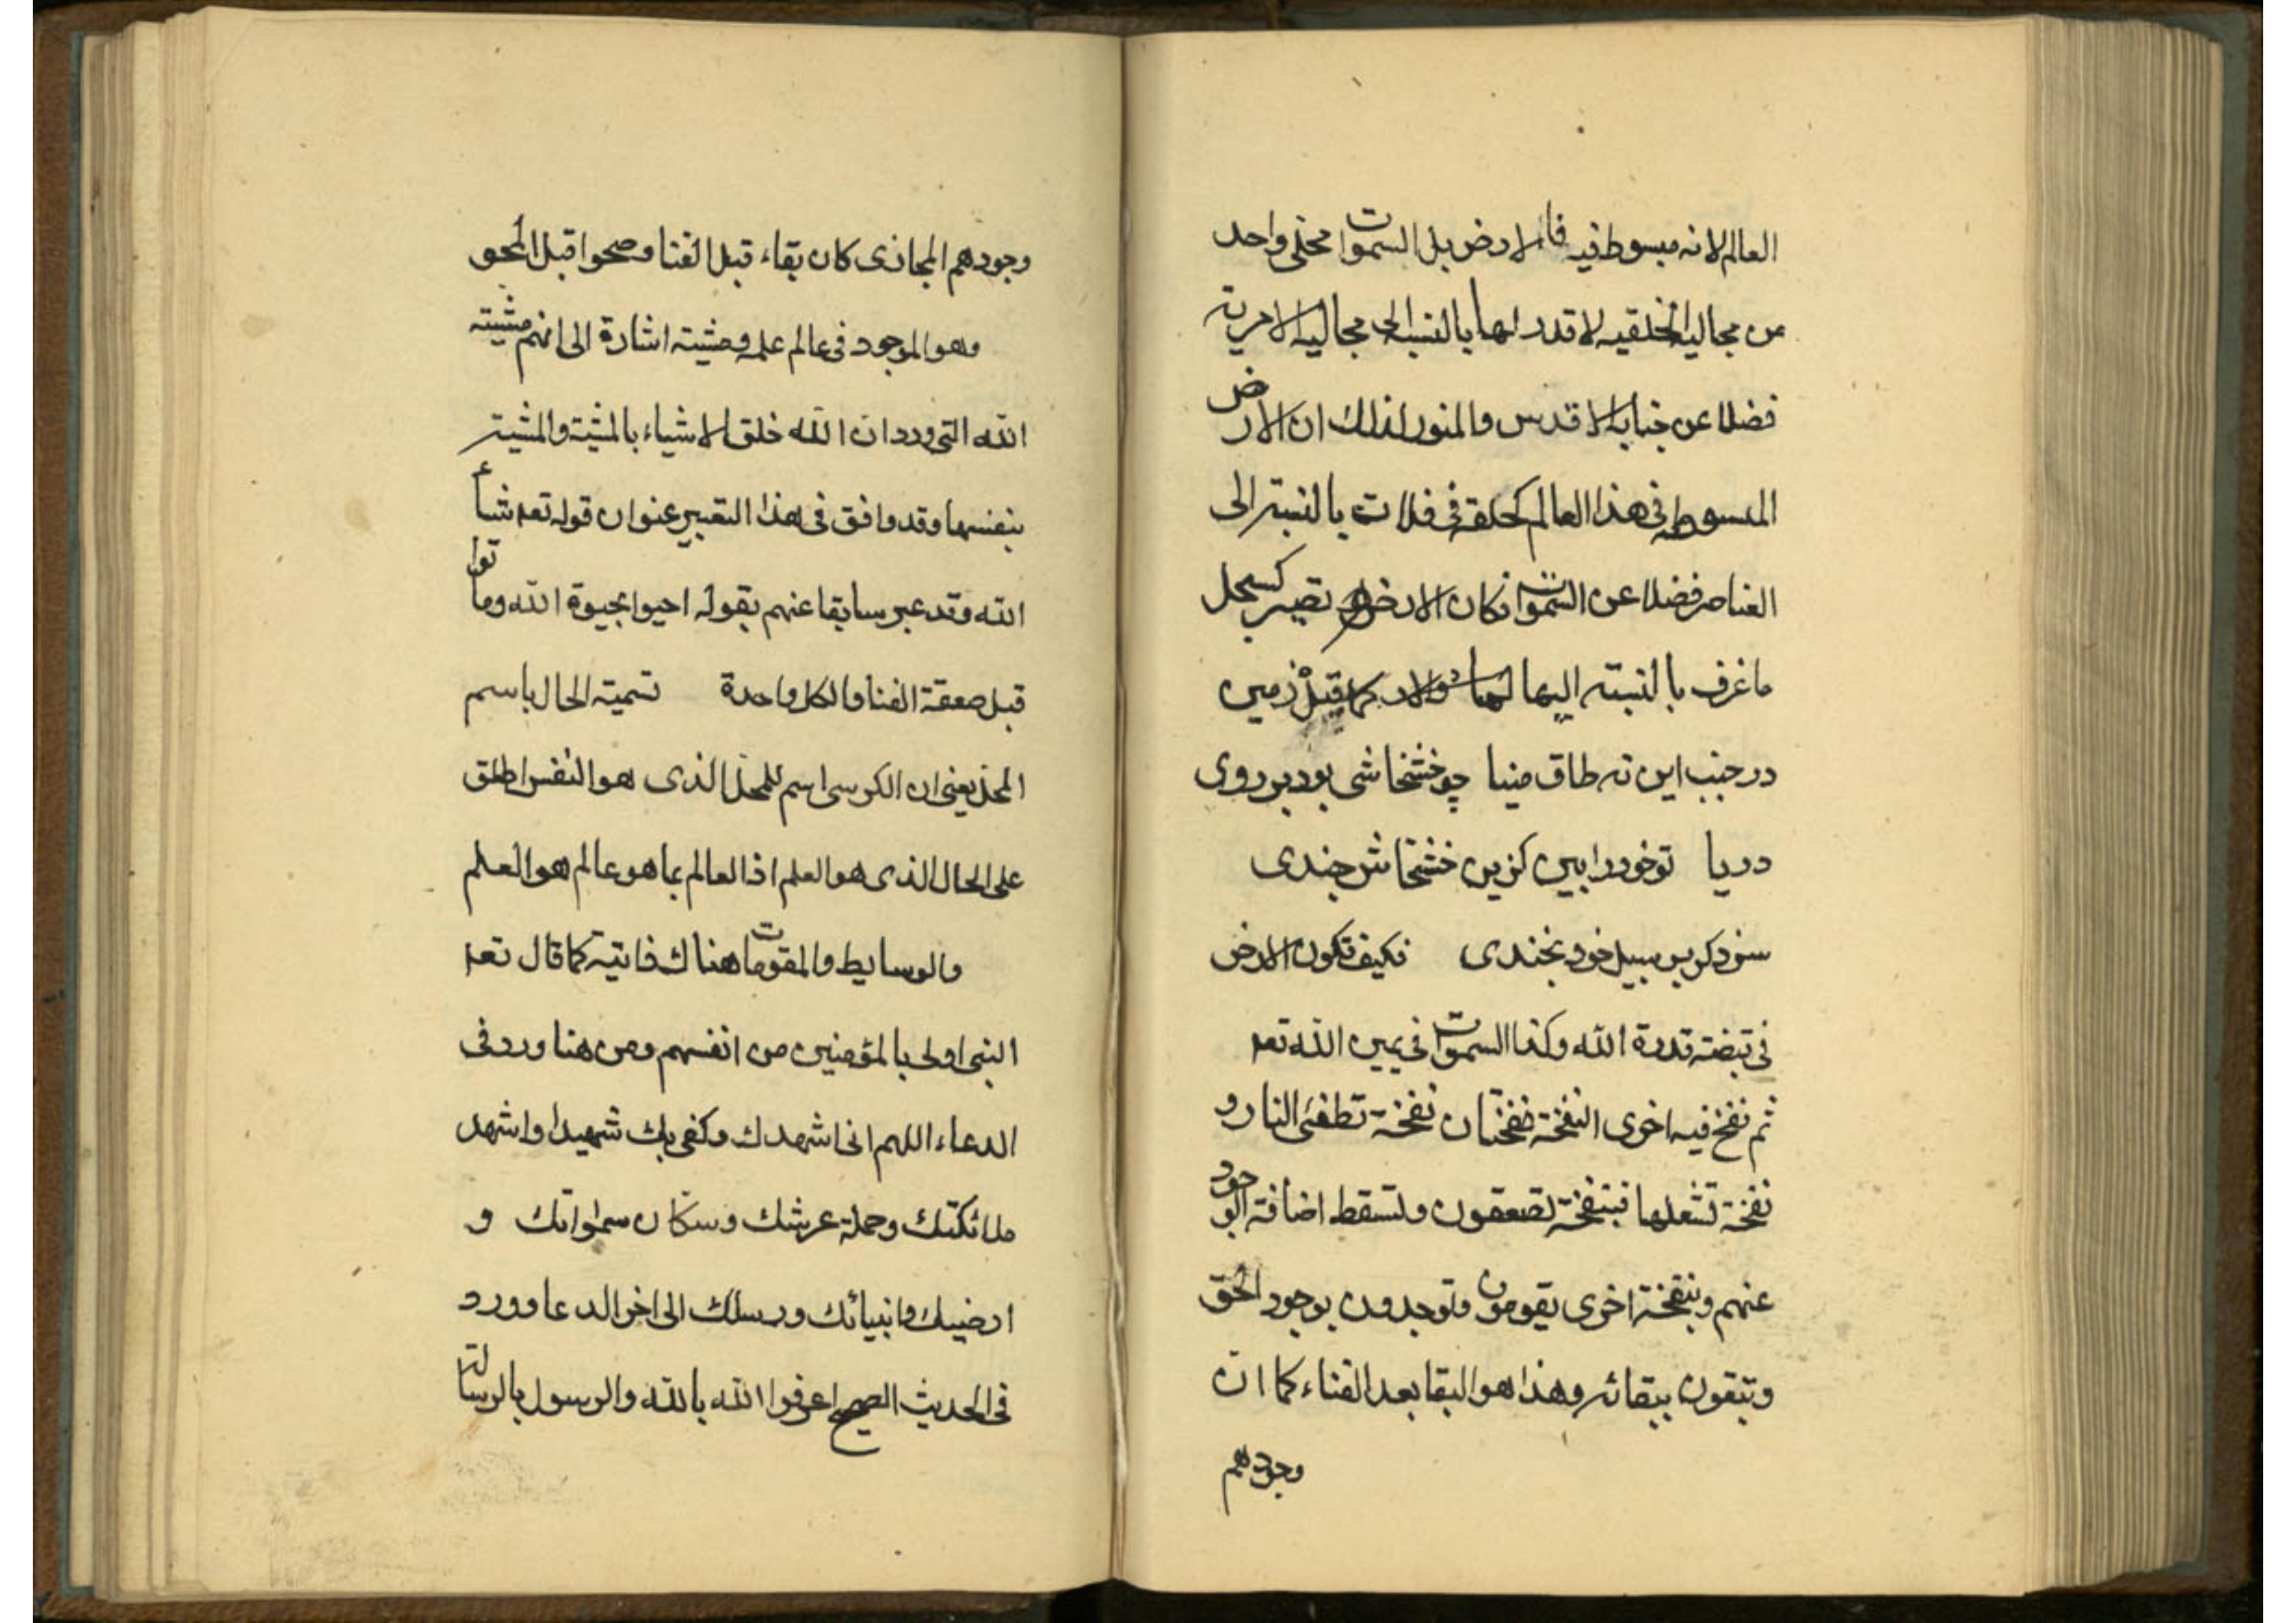 العالم لانه مبسوط فيه فالارض بل السموات مجلى واحد
من مجاليه الخلقيه لا قدر لها بالنسبة الى مجاليه الامرية
فضلا عن جنابه الاقدس والمنور لذلك ان الارض
المبسوطه فى هذا العالم كحلقة فى فلات بالنسبة الى
العناصر فضلا عن السموات فكان الارض تصير كسجل
ما غرف بالنسبته اليها كما قيل زمين
در جنب اين نه طاق مينا چو خشخاشى بود بر روى
دريا توخود را ببين كزين خشخاش چندى
سزد كر بر سبيل خود بخندى فكيف تكون الارض
فى قبضته قدرة الله وكذا السموات فى يمين الله تعه
ثم نفخ فيه اخرى النفخة نفختان نفخة تطفئ النار و
نفخة تشعلها فبنفخة تصعقون وتسقط اضافة الوجود
عنهم وبنفخة اخرى يقومون وتوجدون بوجود الحق
وتبقون ببقائه وهذا هو البقا بعد الفناء كما ان
وجودهم
وجودهم المجازى كان بقاء قبل الفنا وصحوا قبل المحو
وهو الموجود فى عالم علمه ومشيته اشارة الى انهم مشيته
الله التى ورد ان الله خلق الاشياء بالمشية والمشية
بنفسها وقد وافق فى هذا التعبير عنوان قوله تعه شاء
الله وقد عبر سابقا عنهم بقوله احيوا بحيوة الله وماتوا
قبل صعقة الفنا والكل واحدة تسمية الحال باسم
المحل يعنى ان الكرسى اسم للمحل الذى هو النفس اطلق
على الحال الذى هو العلم اذ العالم بما هو عالم هو العلم
والوسايط والمقومات هناك فانية كما قال تعه
النبى اولى بالمؤمنين من انفسهم ومن هنا ورد فى
الدعاء اللهم انى اشهدك وكفى بك شهيدا واشهد
ملائكتك وحملة عرشك وسكان سمواتك و
ارضيك وانبيائك ورسلك الى اخر الدعا وورد
فى الحديث الصحيح اعرفوا الله بالله والرسول بالرسالة